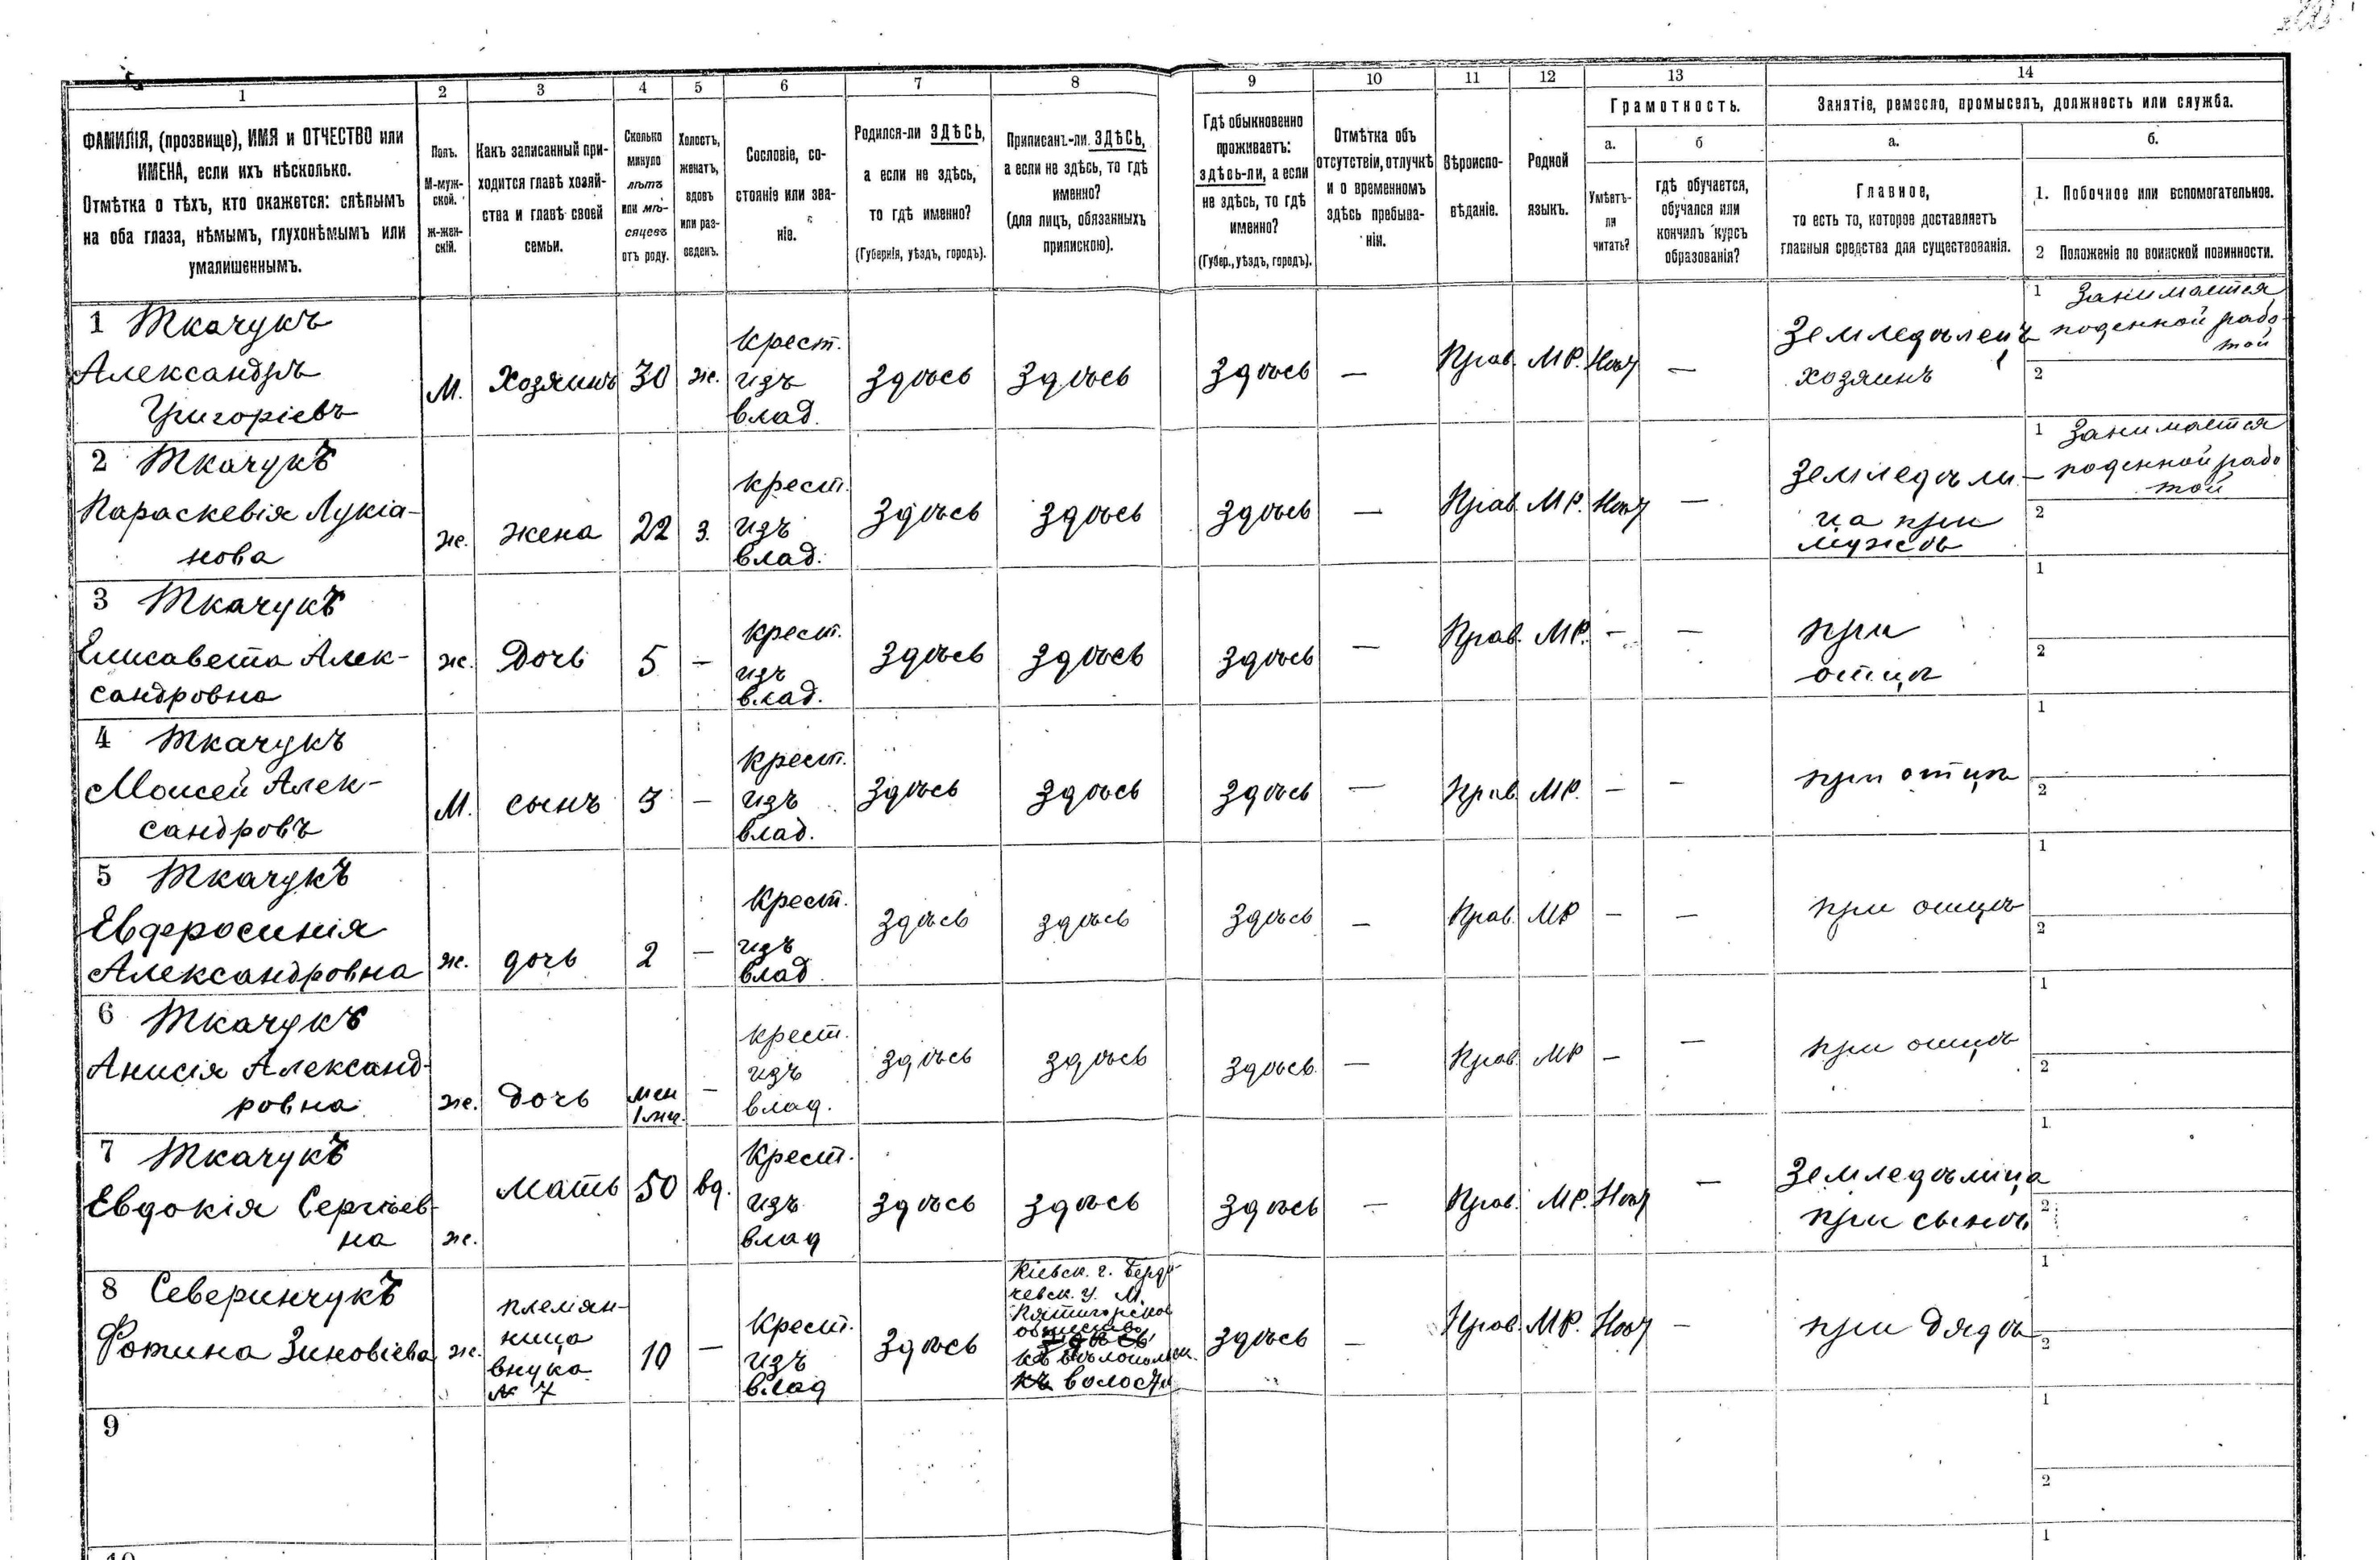 1 2 3 4 5 6 7 8 9 10 11 12 13 14
ФАМИЛІЯ, (прозвище), ИМЯ и ОТЧЕСТВО или
ИМЕНА, если ихъ нѣсколько.
Отмѣтка о тѣхъ, кто окажется: слѣпымъ
на оба глаза, нѣмымъ, глухонѣмымъ или
умалишеннымъ.
Полъ.
М-муж-
ской.
ж-жен-
скій.
Какъ записанный при-
ходится главѣ хозяй-
ства и главѣ своей
семьи.
Сколько
минуло
лѣтъ
или мѣ-
сяцевъ
отъ роду.
Холостъ,
женатъ,
вдовъ
или раз-
веденъ.
Сословіе, со-
стояніе или зва-
ніе.
Родился-ли ЗДѢСЬ,
а если не здѣсь,
то гдѣ именно?
(Губернія, уѣздъ, городъ).
Приписанъ-ли ЗДѢСЬ,
а если не здѣсь, то гдѣ
именно?
(для лицъ, обязанныхъ
припискою).
Гдѣ обыкновенно
проживаетъ:
здѣсь-ли, а если
не здѣсь, то гдѣ
именно?
(Губер., уѣздъ, городъ).
Отмѣтка объ
отсутствіи, отлучкѣ
и о временномъ
здѣсь пребыва-
ніи.
Вѣроиспо-
вѣданіе.
Родной
языкъ.
Грамотность.
а.
Умѣетъ-
ли
читать?
б
гдѣ обучается,
обучался или
кончилъ курсъ
образованія?
Занятіе, ремесло, промыселъ, должность или служба.
а.
Главное,
то есть то, которое доставляетъ
главныя средства для существованія.
б.
1. Побочное или вспомогательное.
2 Положеніе по воинской повинности.
1 Ткачукъ
Александръ
Григоріевъ
М.
Хозяинъ
30
ж.
Крест.
изъ
влад.
здѣсь
здѣсь
здѣсь
—
Прав.
МР.
Нѣт
—
Земледѣлецъ
хозяинъ
1 Занимается
поденной рабо-
той
2
2 Ткачукъ
Параскевія Лукіа-
нова
ж.
жена
22
з.
крест.
изъ
влад.
здѣсь
здѣсь
здѣсь
—
Прав.
МР.
Нѣт
—
Земледѣли-
ца при
мужѣ
1 Занимается
поденной рабо
той
2
3 Ткачукъ
Елисавета Алек-
сандровна
ж.
Дочь
5
—
крест.
изъ
влад.
здѣсь
здѣсь
здѣсь
—
Прав.
МР.
—
—
при
отцѣ
1
2
4 Ткачукъ
Моисей Алек-
сандровъ
М.
сынъ
3
—
крест.
изъ
влад.
здѣсь
здѣсь
здѣсь
—
Прав.
МР.
—
—
при отцѣ
1
2
5 Ткачукъ
Евфросинія
Александровна
ж.
дочь
2
—
Крест.
изъ
влад
здѣсь
здѣсь
здѣсь
—
Прав.
МР
—
—
при отцѣ
1
2
6 Ткачукъ
Анисія Александ-
ровна
ж.
дочь
мен
1 мц.
—
крест.
изъ
влад.
здѣсь
здѣсь
здѣсь
—
Прав.
МР
—
—
при отцѣ
1
2
7 Ткачукъ
Евдокія Сергѣев-
на
ж.
Мать
50
вд.
Крест.
изъ
влад
здѣсь
здѣсь
здѣсь
—
Прав.
МР.
Нѣт
—
Земледѣлица
при сынѣ
1
2
8 Северинчукъ
Фотина Зиновіева
ж.
племян-
ница
внука
№ 7
10
—
Крест.
изъ
влад
здѣсь
Кіевск. г. Берди-
чевск. у. М.
Пятигорское
общество
здѣсь
къ
къ волости
здѣсь
—
Прав.
МР.
Нѣт
—
при дядѣ
1
2
9
1
2
1